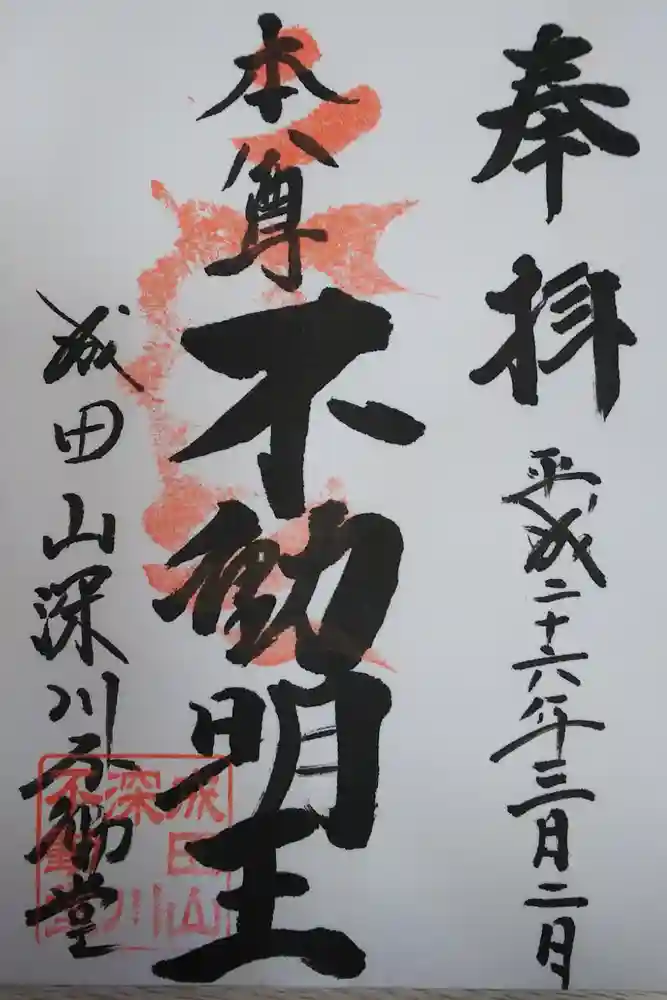 奉拝
平成二十六年三月二日
本尊
不動明王
成田山深川不動堂
成田山
深川
不動堂